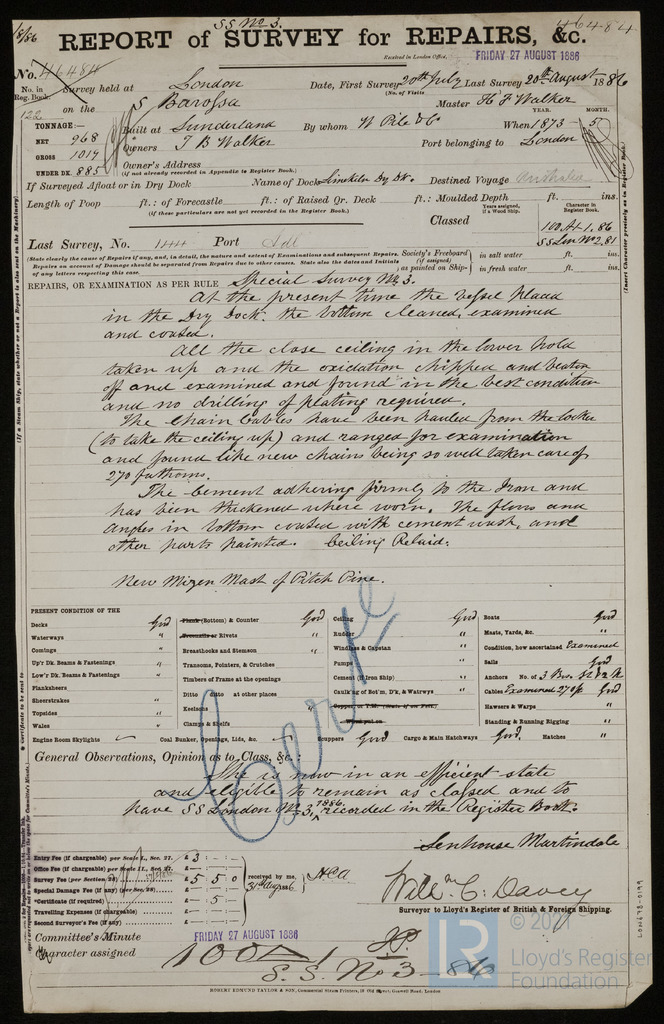 SS No 3.
46484
REPORT of SURVEY for REPAIRS, &c.
Received in London Office, FRIDAY 27 AUGUST 1886
No. 46484
No. in Reg. Book. Survey held at London Date, First Survey 20th July Last Survey 20th August 1886
(No. of Visits)
122 on the Barossa Master H F Walker
TONNAGE:— YEAR. MONTH.
NET 968 Built at Sunderland By whom W Pile & Co When 1873 - 5
GROSS 1019 Owners T B Walker Port belonging to London
UNDER DK. 885 Owner's Address
(if not already recorded in Appendix to Register Book.)
If Surveyed Afloat or in Dry Dock Name of Dock Limekiln Dy Dk. Destined Voyage Australia
Length of Poop ft.: of Forecastle ft.: of Raised Qr. Deck ft.: Moulded Depth ft. ins.
(if these particulars are not yet recorded in the Register Book.)
Years assigned, if a Wood Ship. Character in Register Book.
Classed 100 A1. 86
SS Lon No 2. 81
Last Survey, No. 144 Port Adl
(State clearly the cause of Repairs if any, and, in detail, the nature and extent of Examinations and subsequent Repairs. Repairs on account of Damage should be separated from Repairs due to other causes. State also the dates and initials of any letters respecting this case.)
Society's Freeboard (if assigned) as painted on Ship— in salt water ft. ins.
in fresh water ft. ins.
REPAIRS, OR EXAMINATION AS PER RULE Special Survey No 3.
At the present time the vessel placed
in the Dry Dock. the bottom cleaned, examined
and coated.
All the close ceiling in the lower hold
taken up and the oxidation chipped and beaton
off and examined and found in the best condition
and no drilling of plating required.
The chain cables have been hauled from the locker
(to take the ceiling up) and ranged for examination
and found like new chains being so well taken care of
270 fathoms.
The cement adhering firmly to the Iron and
has been thickened where worn. The floors and
angles in bottom coated with cement wash, and
other parts painted. Ceiling Relaid.
New Mizen Mast of Pitch Pine.
PRESENT CONDITION OF THE
Decks Good
Waterways "
Comings "
Up'r Dk. Beams & Fastenings "
Low'r Dk. Beams & Fastenings "
Planksheers "
Sheerstrakes "
Topsides "
Wales "
Engine Room Skylights
Plank (Bottom) & Counter Good
Treenails or Rivets "
Breasthooks and Stemson "
Transoms, Pointers, & Crutches
Timbers of Frame at the openings
Ditto ditto at other places
Keelsons
Clamps & Shelfs
Coal Bunker, Openings, Lids, &c.
Ceiling Good
Rudder "
Windlass & Capstan "
Pumps "
Cement (if Iron Ship) "
Caulk'ng of Bot'm, D'k, & Watrwys "
Scuppers Good Cargo & Main Hatchways Good. Hatches "
Boats Good
Masts, Yards, &c. "
Condition, how ascertained Examined
Sails Good
Anchors No. of 3 Bos. St & 2 K
Cables Examined 270 fs Good
Hawsers & Warps "
Standing & Running Rigging "
General Observations, Opinion as to Class, &c.:
She is now in an efficient state
and eligible to remain as classed and to
have SS London No 3, 1886. recorded in the Register Book.
Senhouse Martindale
Entry Fee (if chargeable) per Scale I., Sec. 27. £ 3 : - : -
Office Fee (if chargeable) per Scale II., Sec. 27. £
Survey Fee (per Section 28) £ 5 5 0
Special Damage Fee (if any) (per Sec. 28) £
*Certificate (if required) £ - 5 -
Travelling Expenses (if chargeable) £
Second Surveyor's Fee (if any) £
received by me, 31st Aug 86
Willm C. Davey
Surveyor to Lloyd's Register of British & Foreign Shipping.
Committee's Minute FRIDAY 27 AUGUST 1886
Character assigned 100 A 1
S.S. No 3 - 86
ROBERT EDMUND TAYLOR & SON, Commercial Steam Printers, 19 Old Street, Goswell Road, London
LON678-0199
© 2021
LR
Lloyd's Register
Foundation